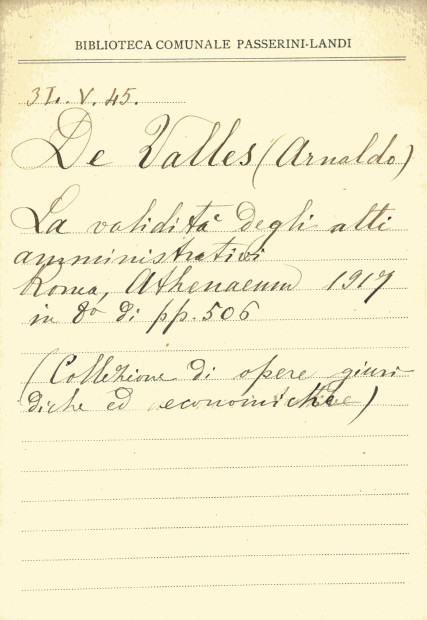 BIBLIOTECA COMUNALE PASSERINI-LANDI
3L. V. 45.
De Valles (Arnaldo)
La validità degli atti
amministrativi
Roma, Athenaeum 1917
in 8° di pp. 506
(Collezione di opere giuri-
diche ed economiche)